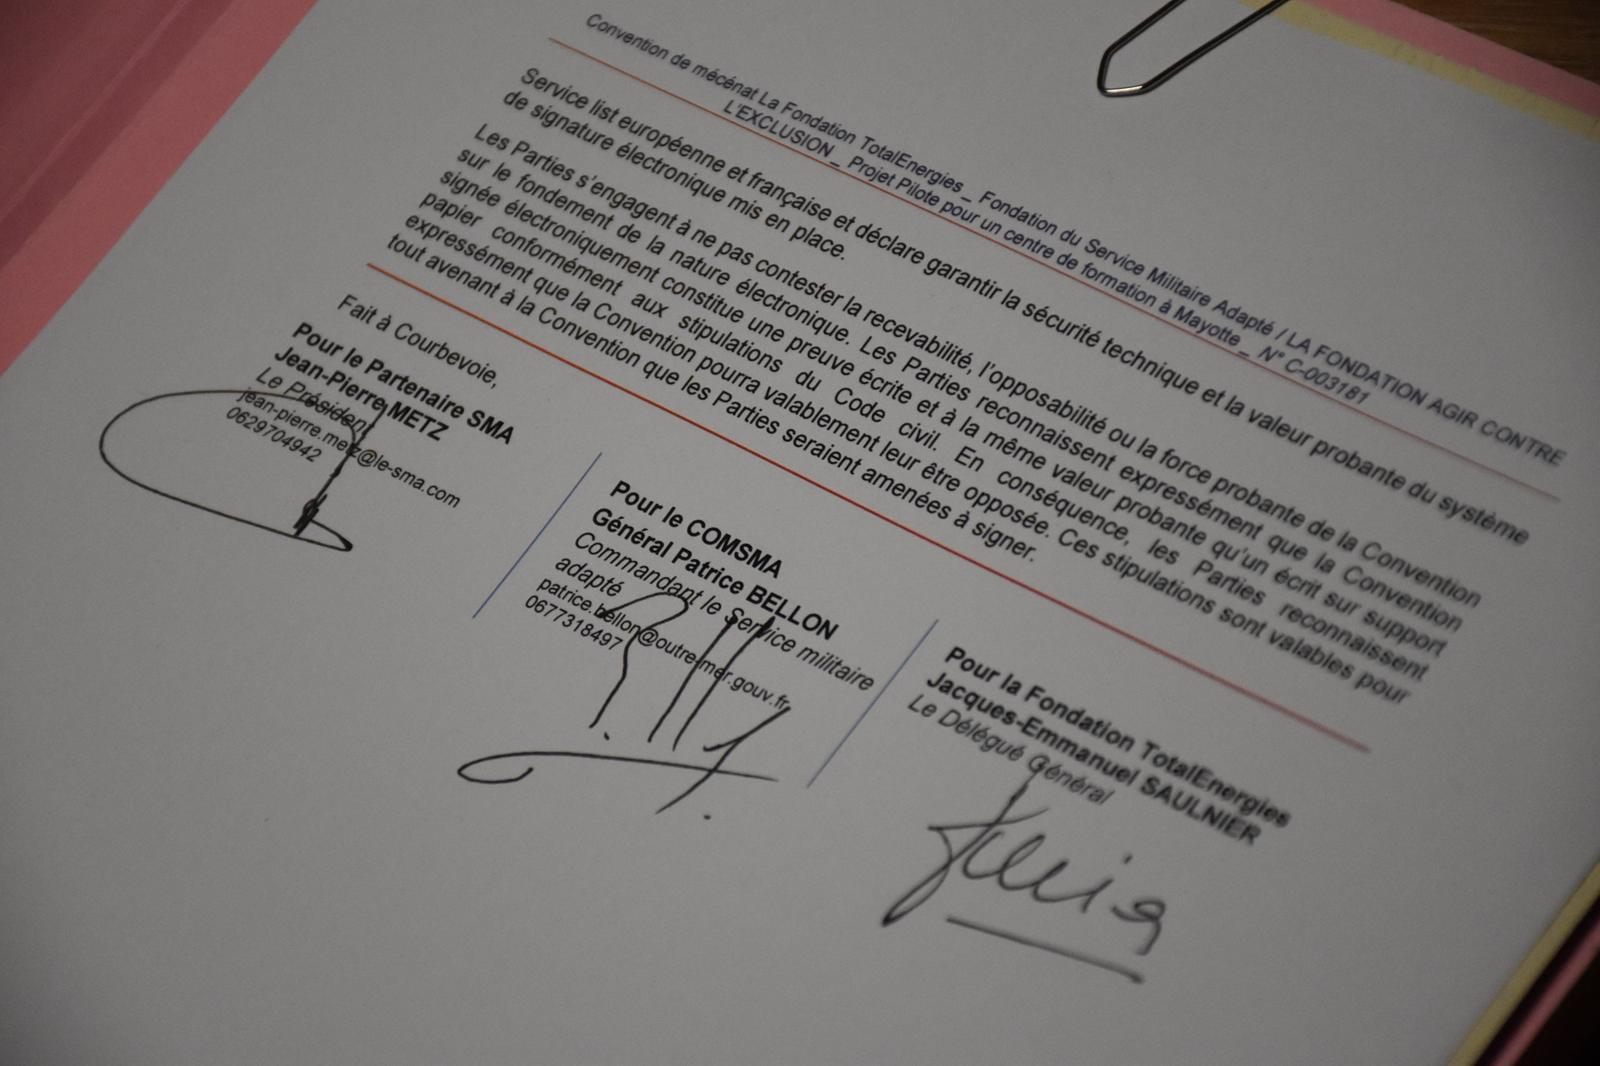 Convention de mécénat La Fondation TotalEnergies _ Fondation du Service Militaire Adapté / LA FONDATION AGIR CONTRE
L'EXCLUSION _ Projet Pilote pour un centre de formation à Mayotte _ N° C-003181
Service list européenne et française et déclare garantir la sécurité technique et la valeur probante du système
de signature électronique mis en place.
Les Parties s'engagent à ne pas contester la recevabilité, l'opposabilité ou la force probante de la Convention
sur le fondement de la nature électronique. Les Parties reconnaissent expressément que la Convention
signée électroniquement constitue une preuve écrite et à la même valeur probante qu'un écrit sur support
papier conformément aux stipulations du Code civil. En conséquence, les Parties reconnaissent
expressément que la Convention pourra valablement leur être opposée. Ces stipulations sont valables pour
tout avenant à la Convention que les Parties seraient amenées à signer.
Fait à Courbevoie,
Pour le Partenaire SMA
Jean-Pierre METZ
Le Président
jean-pierre.metz@le-sma.com
0629704942
Pour le COMSMA
Général Patrice BELLON
Commandant le Service militaire
adapté
patrice.bellon@outre-mer.gouv.fr
0677318497
Pour la Fondation TotalEnergies
Jacques-Emmanuel SAULNIER
Le Délégué Général